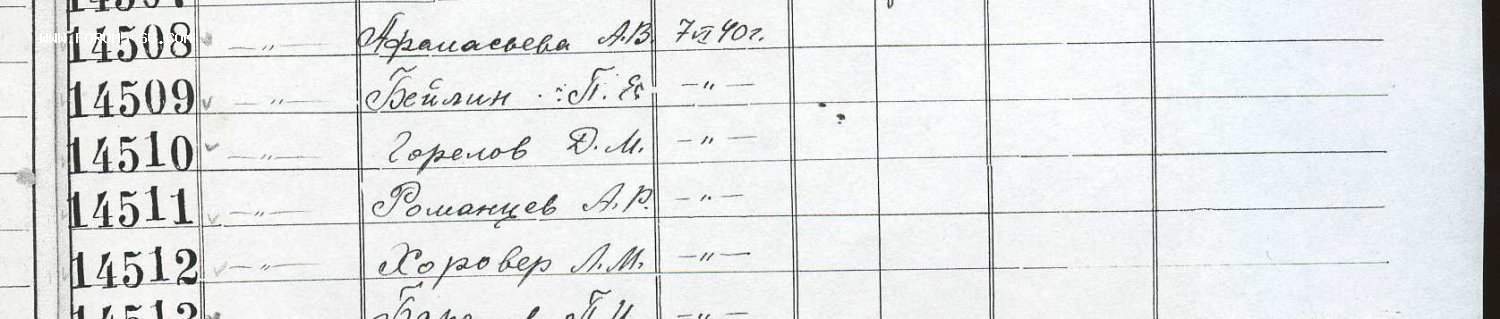 14508 —〃— Афанасьева А.В. 7 VI 40 г.
14509 —〃— Бейлин П. Е. —〃—
14510 —〃— Горелов Д. М. —〃—
14511 —〃— Романцев А. Р. —〃—
14512 —〃— Хоровер Л. М. —〃—
14513 П. И. —〃—